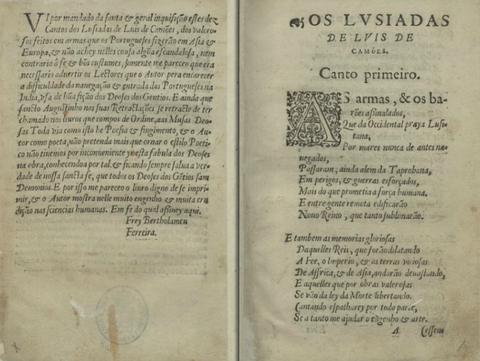 VI por mandado da santa & geral inquisição estes dez
Cantos dos Lusiadas de Luis de Camões, dos valero-
sos feitos em armas que os Portugueses fizerão em Asia &
Europa, & não achey nelles cousa algũa escandalosa, nem
contraria â fe & bõs custumes, somente me pareceo que era
necessario aduertir os Lectores que o Autor pera encarecer
a difficuldade da nauegação & entrada dos Portugueses na
India, vsa de hũa fição dos Deoses dos Gentios. E ainda que
sancto Augustinho nas suas Retractações se retracte de ter
chamado nos liuros que compos de Ordine, aas Musas Deo-
sas. Toda via como isto he Poesia & fingimento, & o Au-
tor como poeta, não pretenda mais que ornar o estilo Poeti-
co não tiuemos por inconueniente yr esta fabula dos Deoses
na obra, conhecendoa por tal, & ficando sempre salua a ver-
dade de nossa sancta fe, que todos os Deoses dos Gẽtios sam
Demonios. E por isso me pareceo o liuro digno de se impri-
mir, & o Autor mostra nelle muito engenho & muita eru-
dição nas sciencias humanas. Em fe do qual assiney aqui.
Frey Bertholameu
Ferreira.
OS LVSIADAS
DE LVIS DE
CAMÕES.
Canto primeiro.
AS armas, & os ba-
rões assinalados,
Que da Occidental praya Lusi-
tana,
Por mares nunca de antes na-
uegados,
Passaram, ainda alem da Taprobana,
Em perigos, & guerras esforçados,
Mais do que prometia a força humana.
E entre gente remota edificarão
Nouo Reino, que tanto sublimarão.
E tambem as memorias gloriosas
Daquelles Reis, que forão dilatando
A Fee, o Imperio, & as terras viciosas
De Affrica, & de Asia, andarão deuastando,
E aquelles que por obras valerosas
Se vão da ley da Morte libertando.
Cantando espalharey por toda parte,
Se a tanto me ajudar o engenho & arte.
A
Cessem